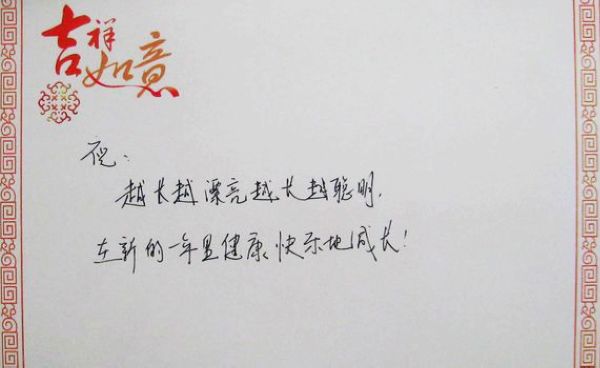 吉祥
如意
祝：
越长越漂亮越长越聪明，
在新的一年里健康快乐地成长！